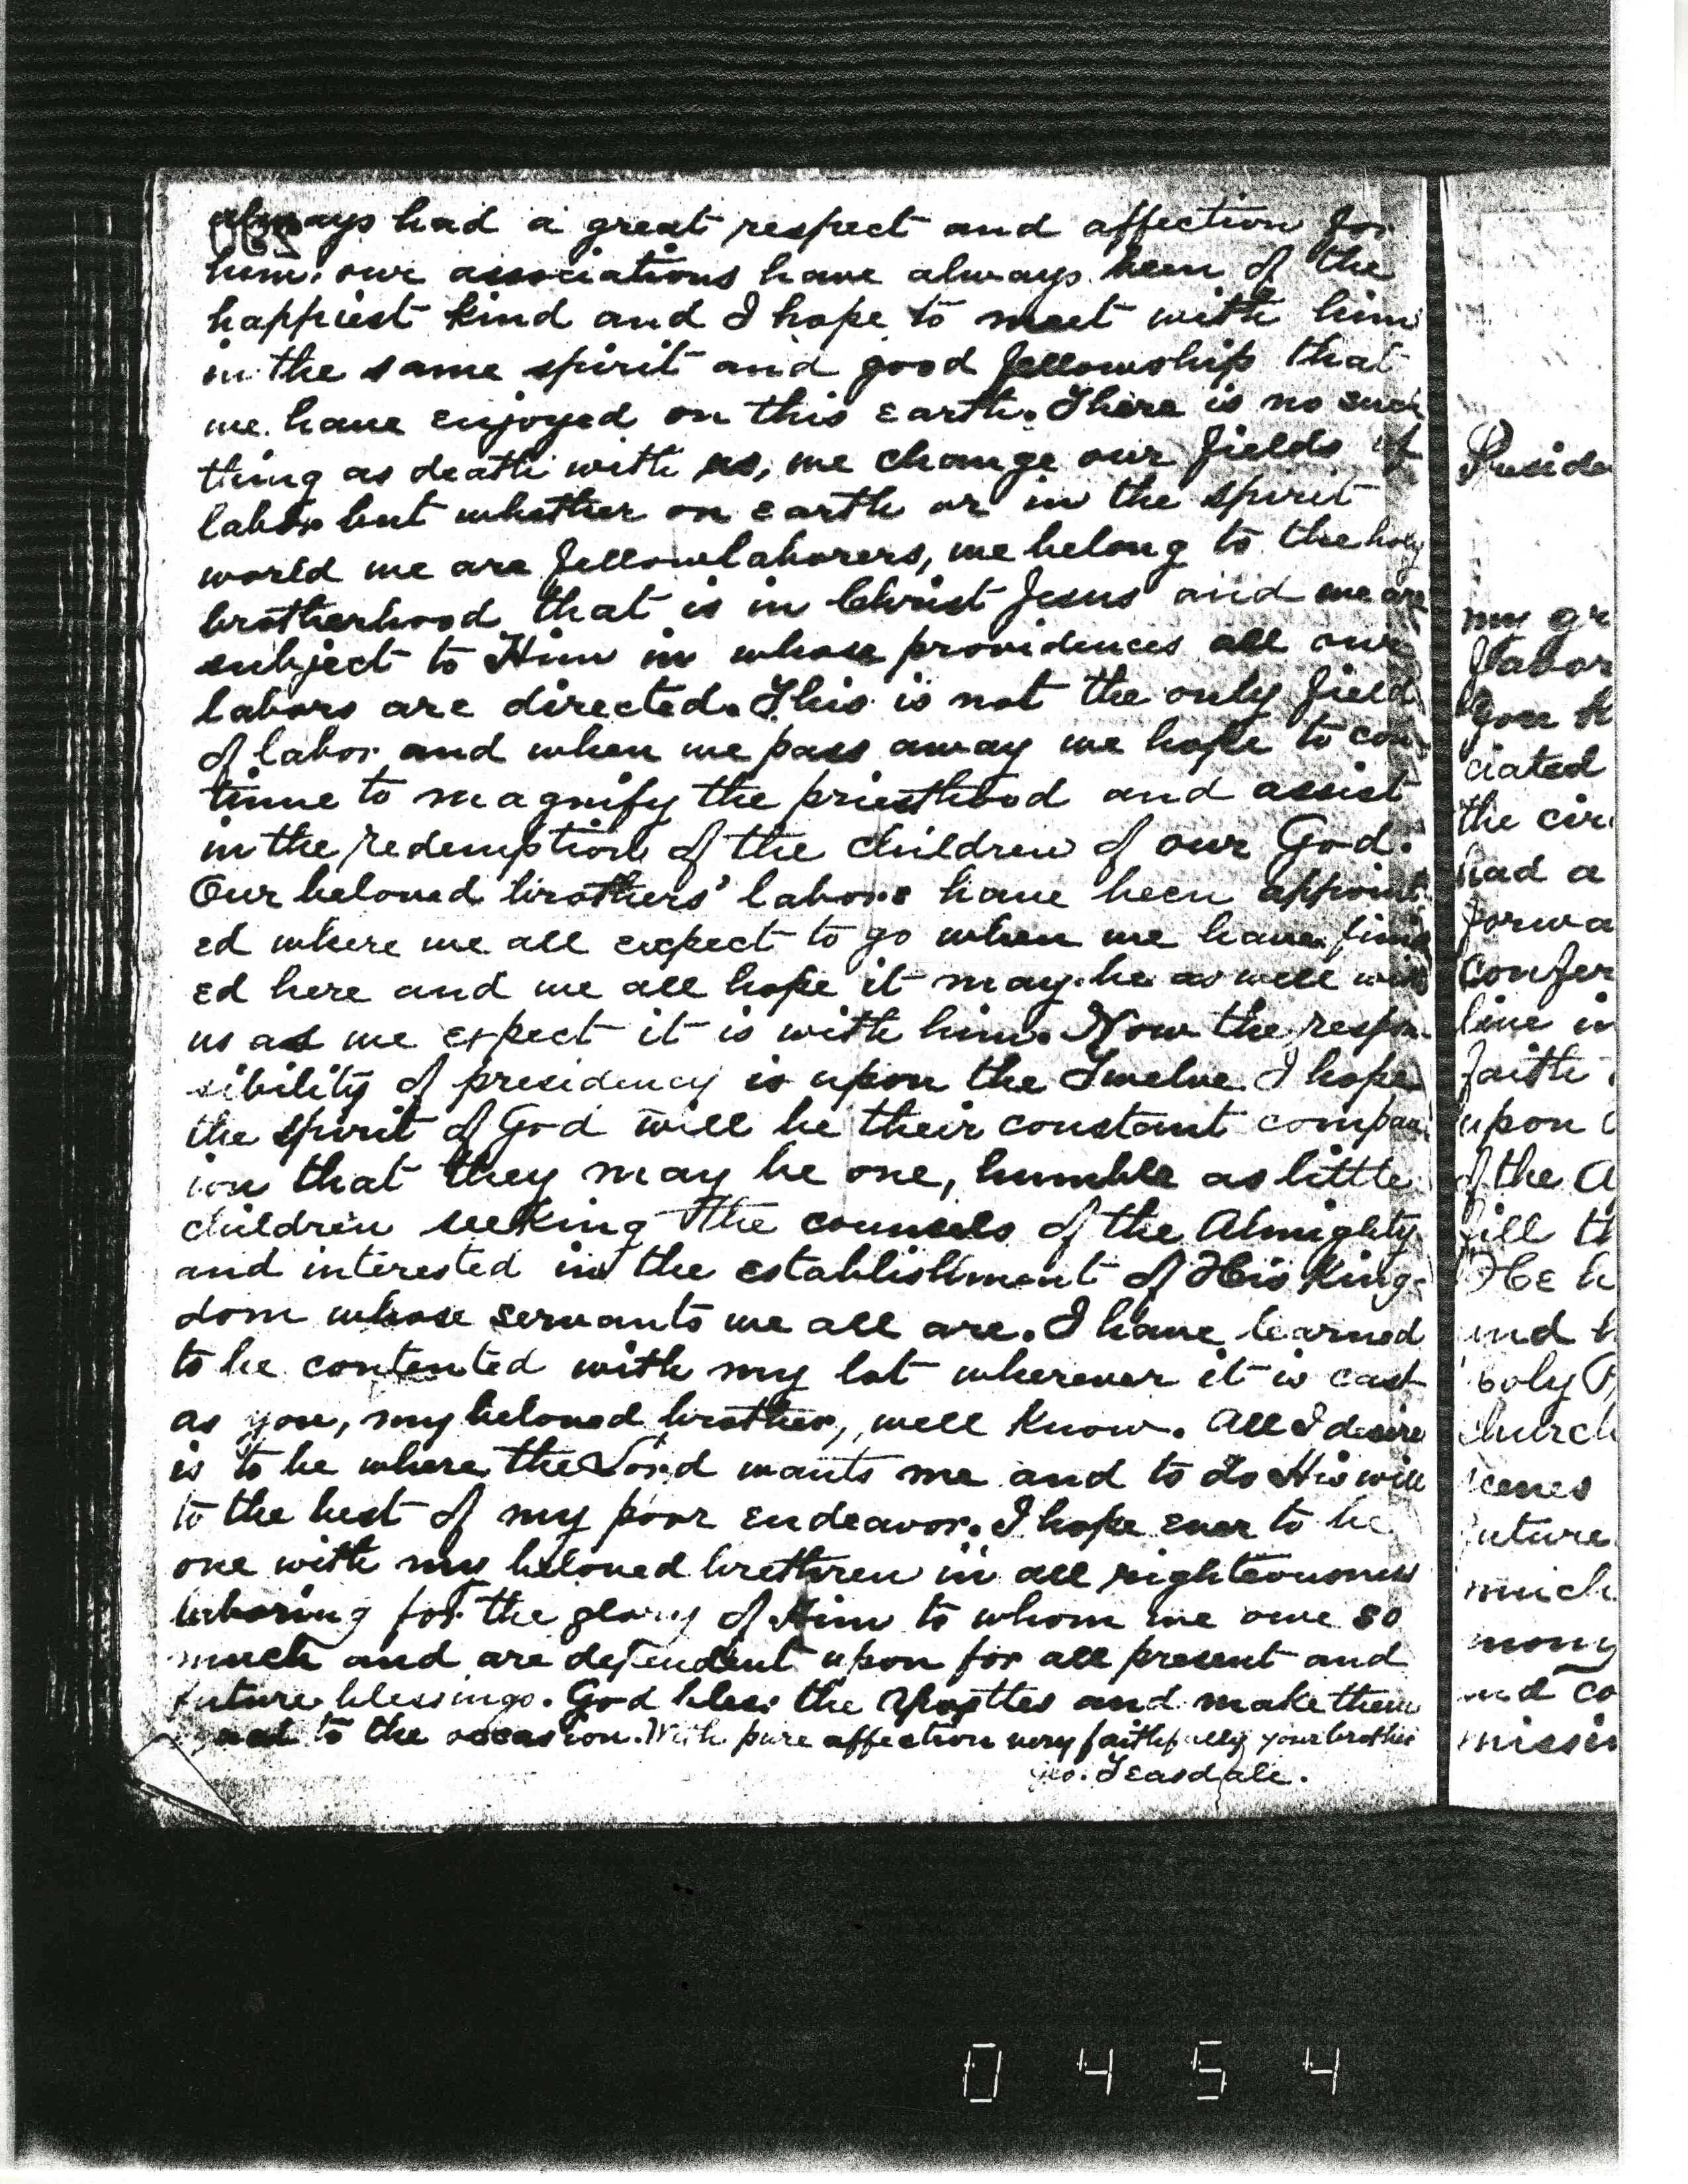 always had a great respect and affection for
him. our associations have always been of the
happiest kind and I hope to meet with him
in the same spirit and good fellowship that
we have enjoyed on this earth. There is no such
thing as death with us, we change our fields of
labor but whether on earth or in the spirit
world we are fellowlaborers, we belong to the holy
brotherhood that is in Christ Jesus and we are
subject to Him in whose providences all our
labors are directed. This is not the only field
of labor and when we pass away we hope to con
tinue to magnify the priesthood and assist
in the redemption of the children of our God.
Our beloved brothers' labors have been appoint
ed where we all expect to go when we have finis
ed here and we all hope it may be as well with
us as we expect it is with him. Now the respon
sibility of presidency is upon the Twelve I hope
the spirit of God will be their constant compan
ion that they may be one, humble as little
children seeking the counsels of the Almighty
and interested in the establishment of His King-
dom whose servants we all are. I have learned
to be contented with my lot wherever it is cast
as you, my beloved brother, well know. All I desire
is to be where the Lord wants me and to do His will
to the best of my poor endeavor. I hope ever to be
one with my beloved brethren in all righteousness
laboring for the glory of Him to whom we owe so
much and are dependent upon for all present and
future blessings. God bless the Apostles and make them
to the occasion. With pure affection very faithfully your brother
Geo. Teasdale.
Preside
my gr
labor
you
ciated
the cir
had a
forwa
confer
line in
faith
upon
of the A
fill th
He h
and h
Holy P
church
scenes
future
much
mony
and co
missi
0 4 5 4